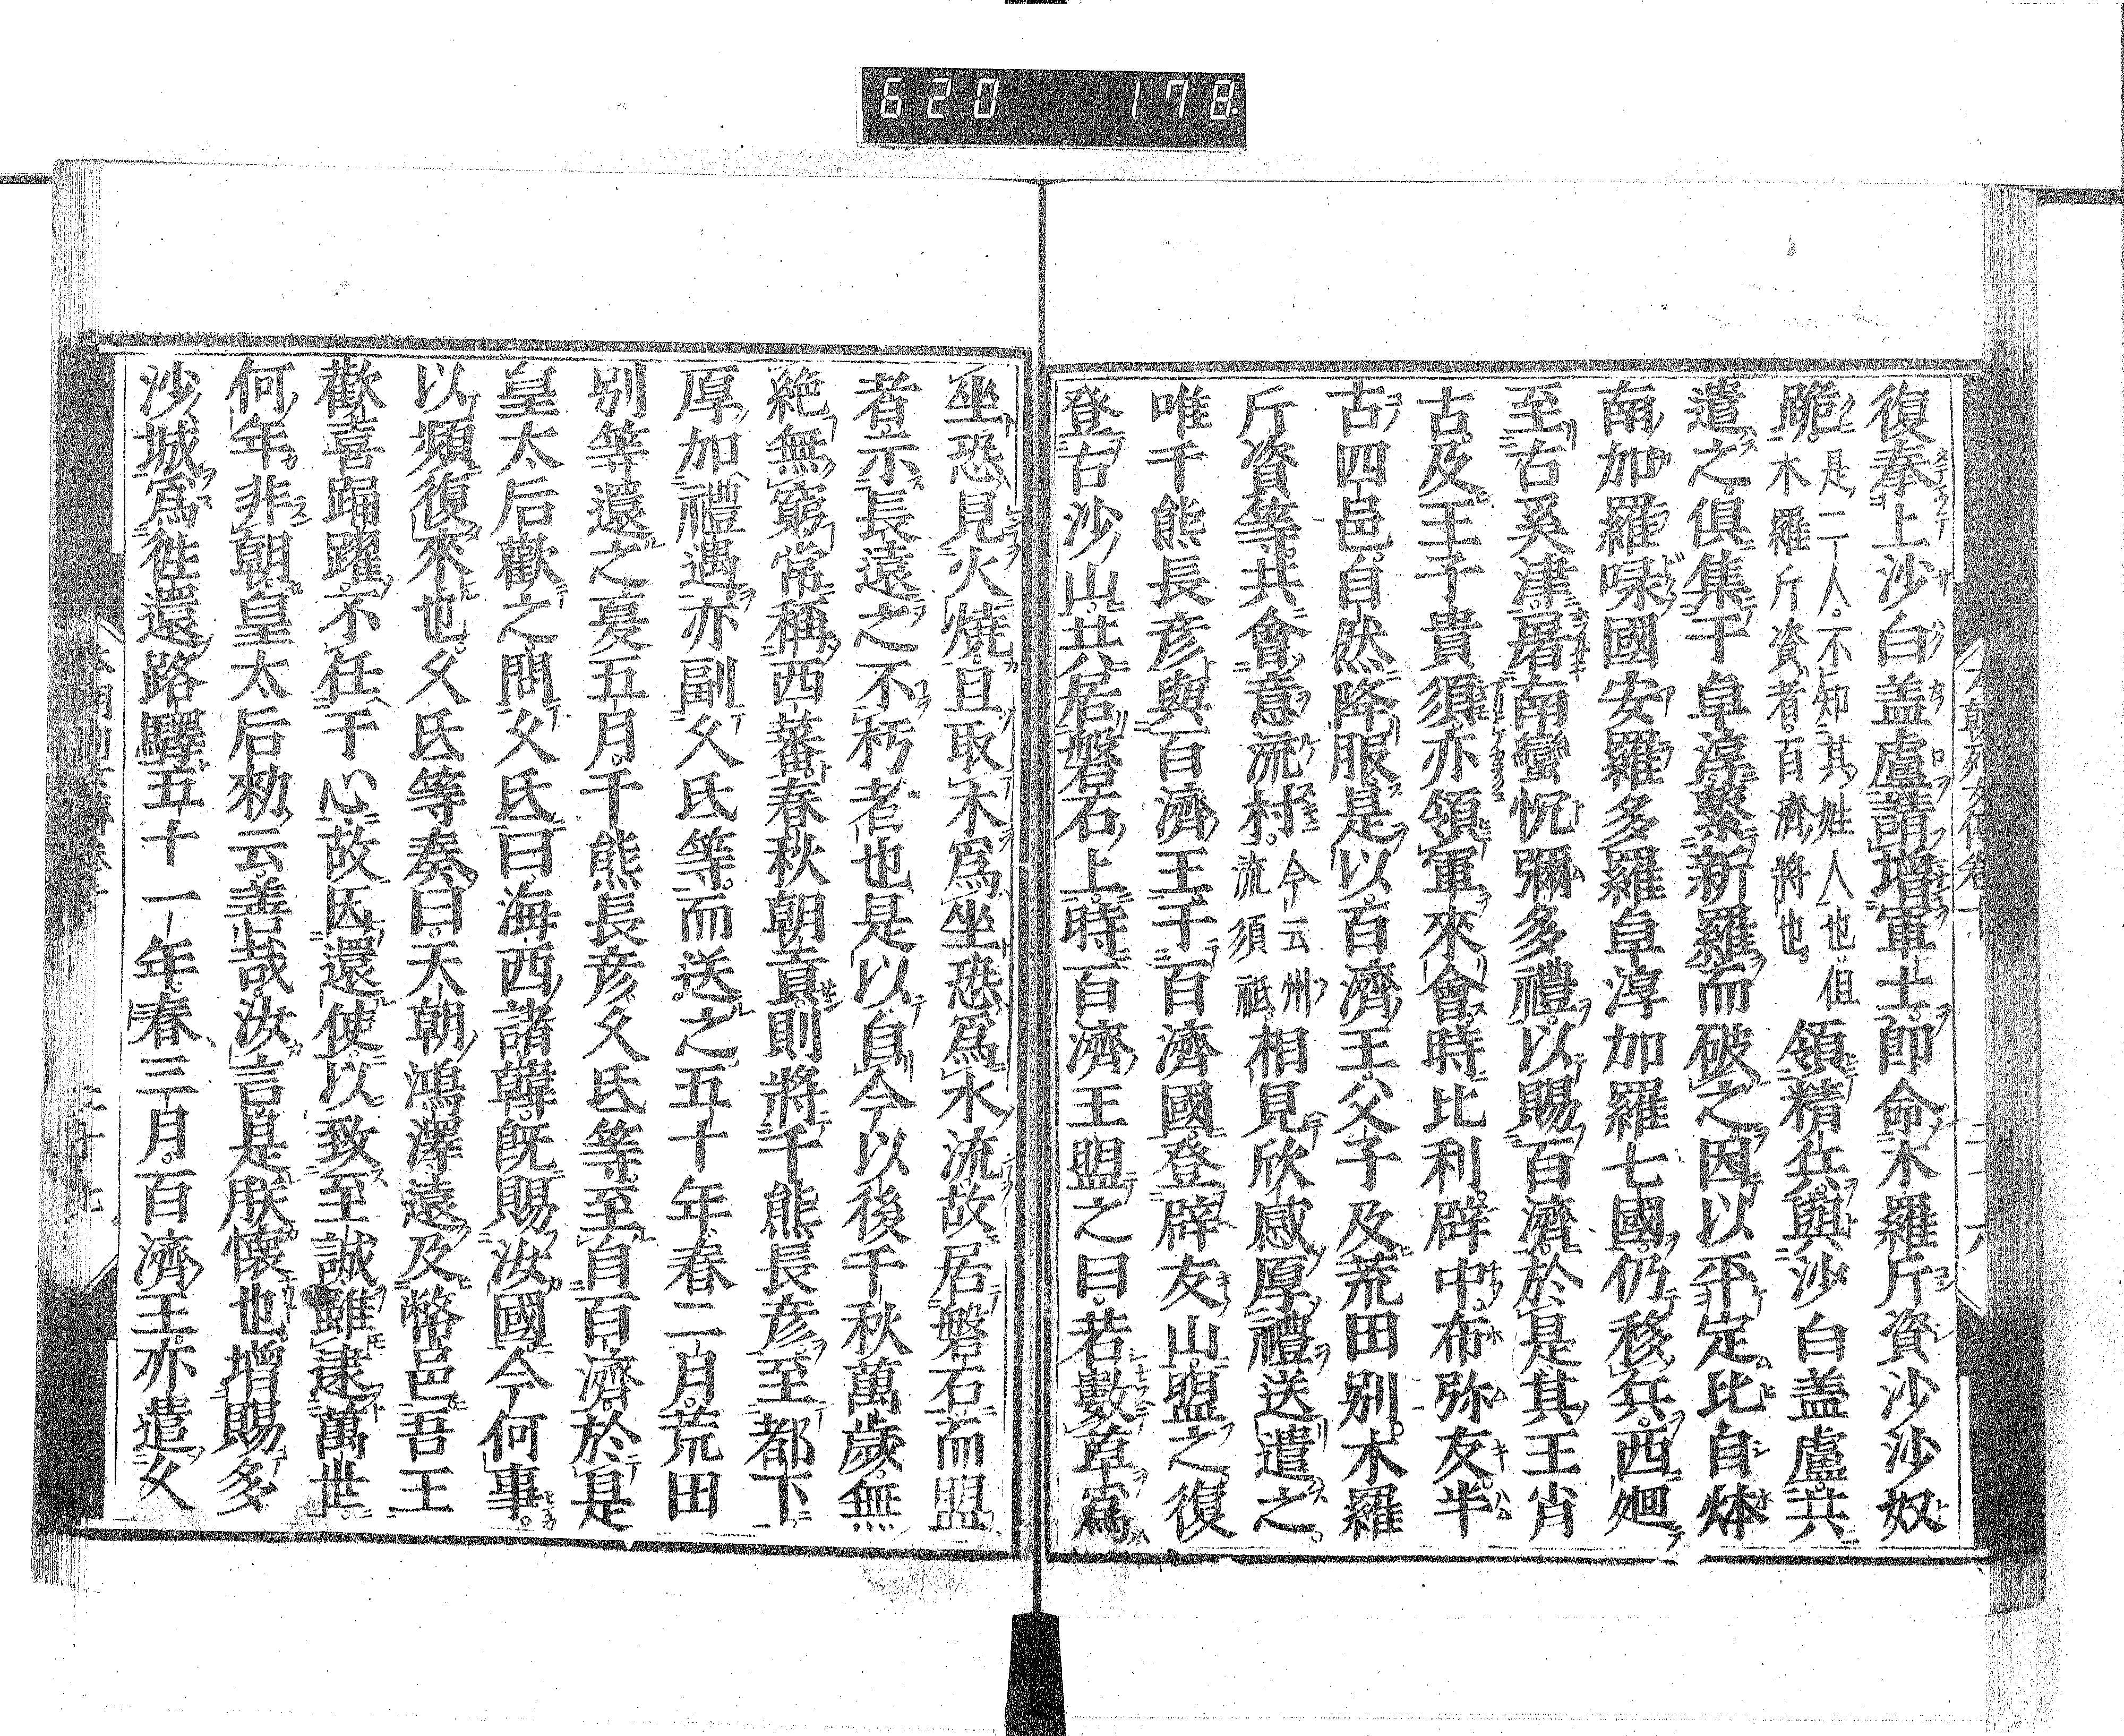 620 178
復奉上沙白盖盧請増軍士即命木羅斤資沙沙奴
跪是二人不知其姓人也但木羅斤資者百濟將也領精兵與沙白盖盧共
遣之倶集于卓淳繫新羅而破之因以平定比自㶱
南加羅㖨國安羅多羅卓淳加羅七國仍移兵西廻
至古奚津屠南蠻忱彌多禮以賜百濟於是其王肖
古及王子貴須亦領軍來會時比利辟中布弥友半
古四邑自然降服是以百濟王父子及荒田別木羅
斤資等共會意流村今云州流須祇相見欣感厚禮送遣之
唯千熊長彦與百濟王于百濟國登辟友山盟之復
登古沙山共居磐石上時百濟王盟之曰若敷草爲
坐恐見火燒且取木爲坐恐爲水流故居磐石而盟
者示長遠之不朽者也是以自今以後千秋萬歲無
絶無窮常稱西蕃春秋朝貢則將千熊長彦至都下
厚加禮遇亦副久氐等而送之五十年春二月荒田
別等還之夏五月千熊長彦久氐等至自百濟於是
皇太后歡之問久氐曰海西諸韓既賜汝國今何事
以頻復來也久氐等奏曰天朝鴻澤遠及弊邑吾王
歡喜踊躍不任于心故因還使以致至誠雖逮萬世
何年非朝皇太后勑云善哉汝言是朕懷也增賜多
沙城爲往還路驛五十一年春三月百濟王亦遣久